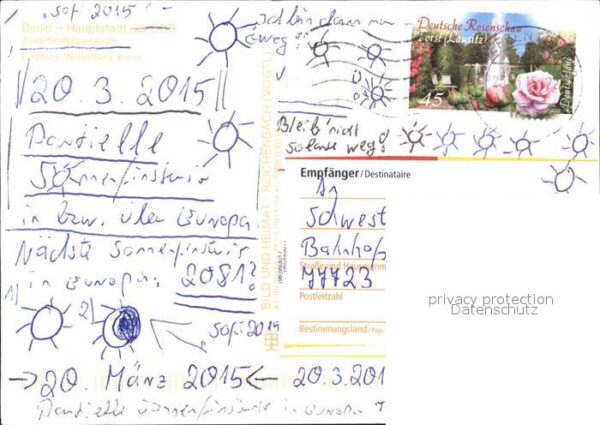 "Sofi 2015"
Berlin - Hauptstadt der DDR
|| 20.3.2015 ||
Partielle
Sonnenfinsternis
in bzw. über Europa
Nächste Sonnenfinsternis
in Europa: 2081?
1)
2)
Sofi 2015
→ 20. März 2015 ←
Partielle Sonnenfinsternis in Europa
Ich bin dann mal
weg!
Bleib' nicht
so lange weg!
BILD UND HEIMAT REICHENBACH (VOGTL)
Deutsche Rosenschau
Forst (Lausitz)
45
Deutschland
Empfänger/Destinataire
An
Schwest
Bahnhofs
Straße und Hausnummer
77723
Postleitzahl
Bestimmungsland/Pays
20.3.201
privacy protection
Datenschutz